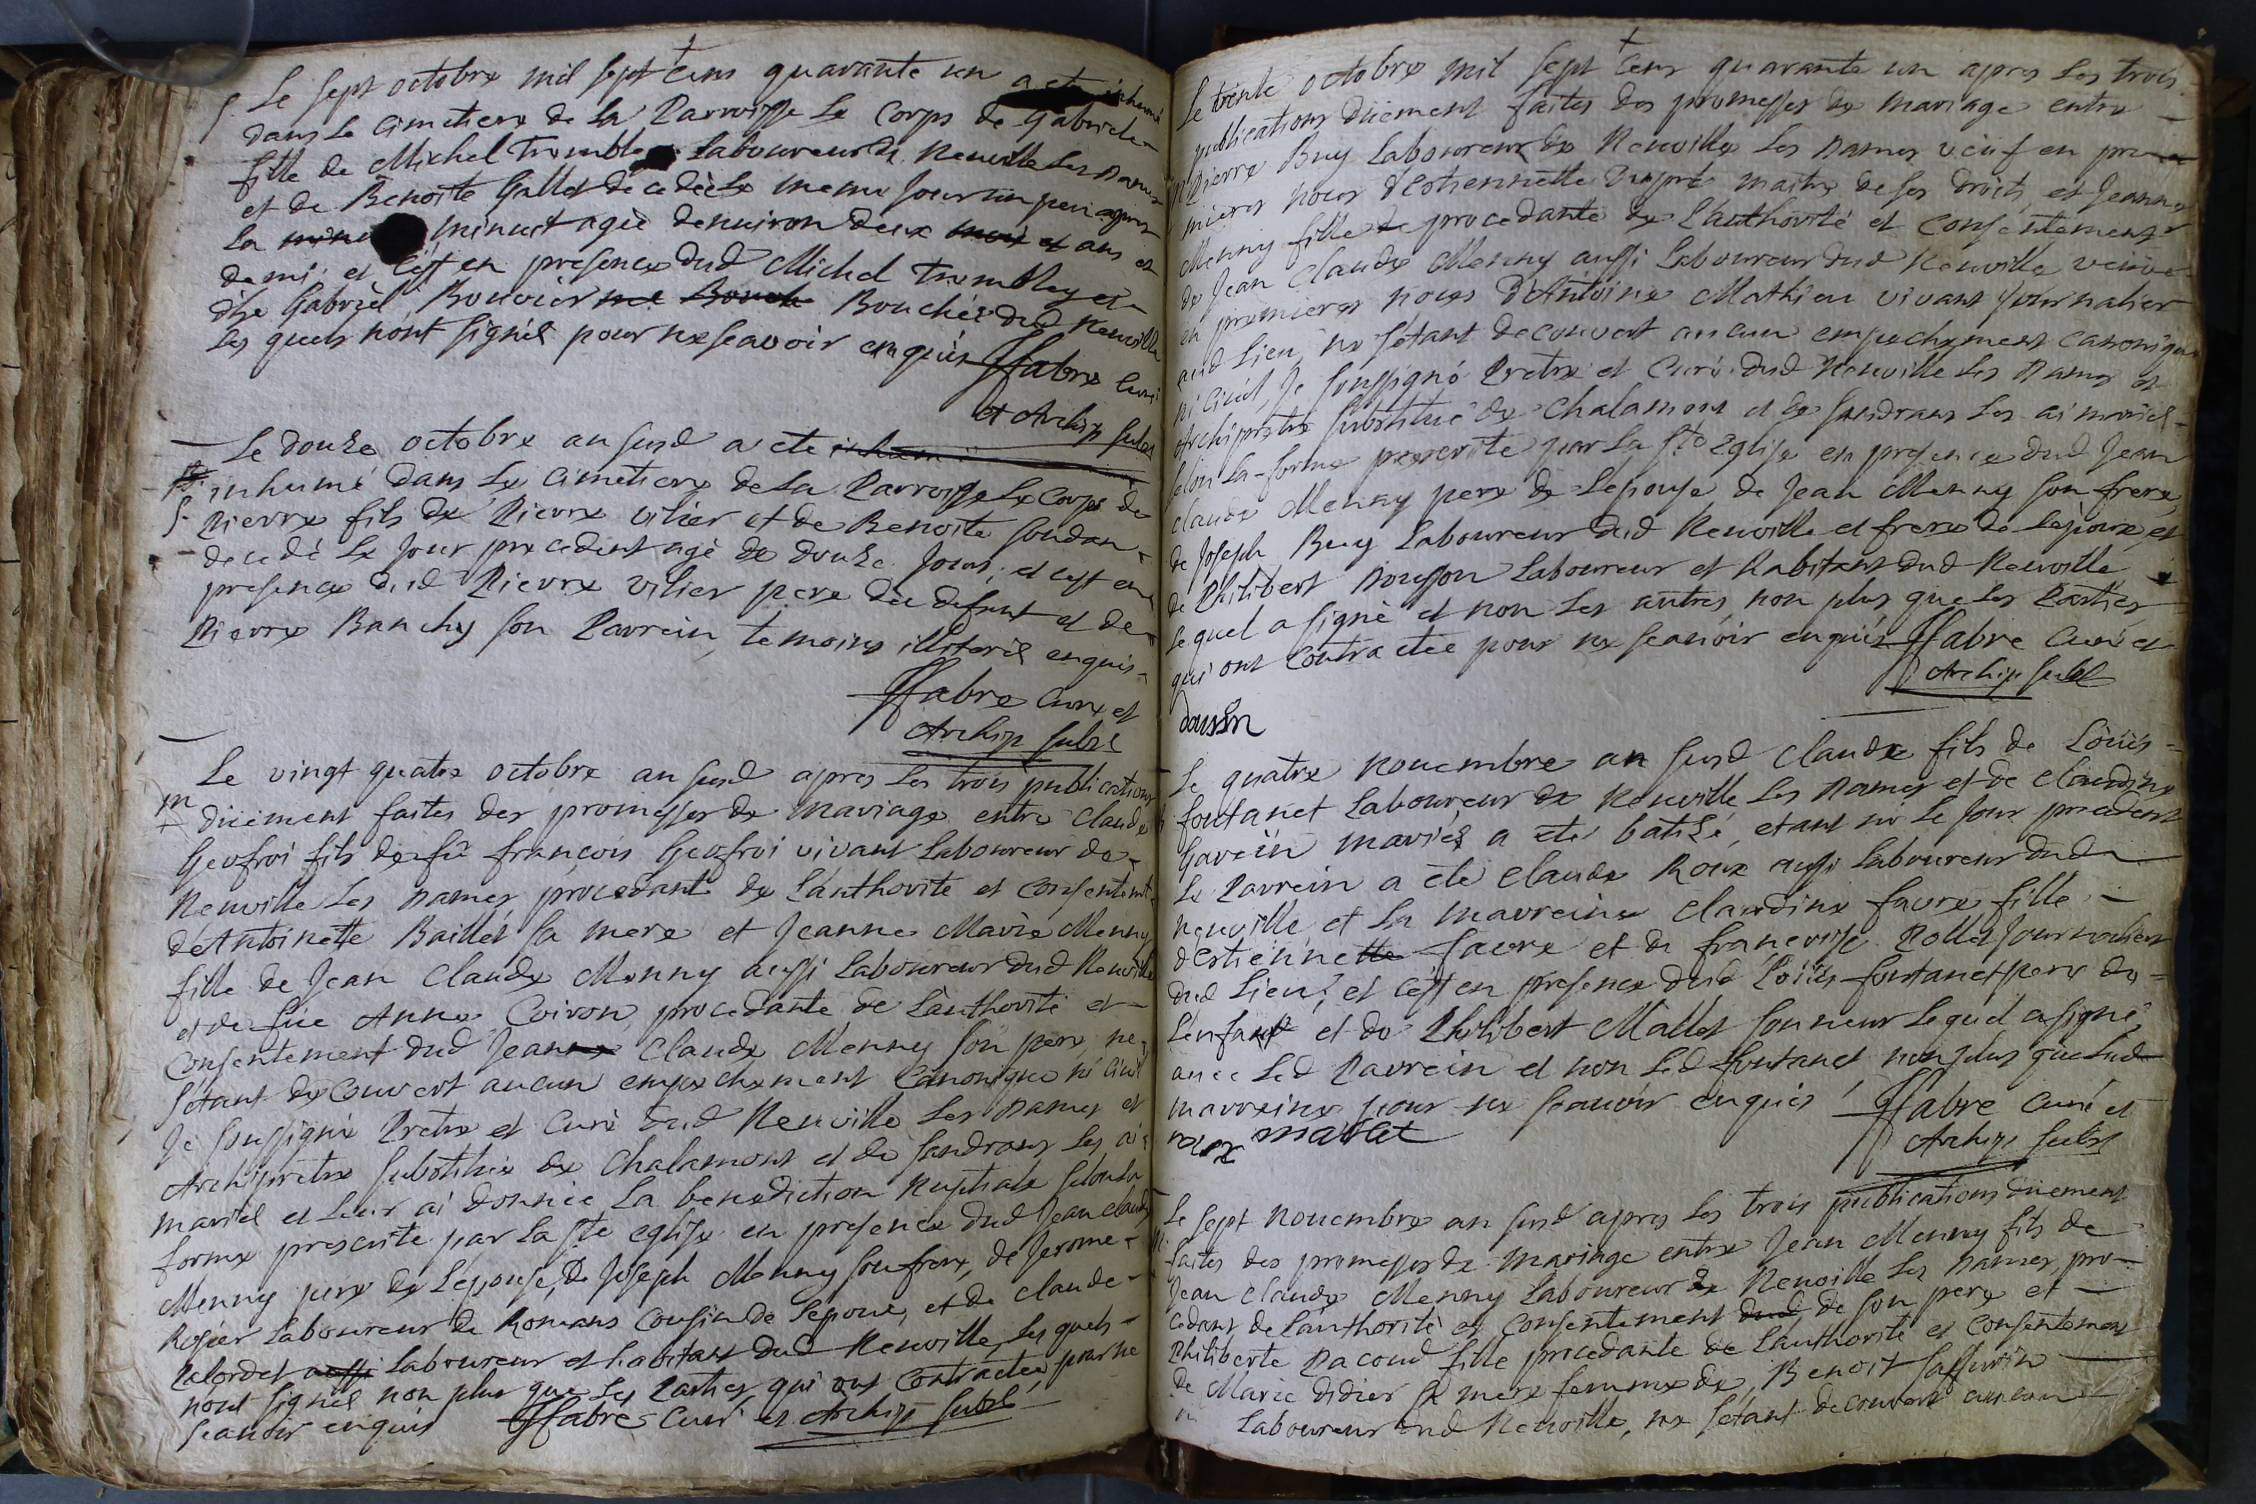 Le sept octobre mil sept cens quarante un a ete inhumé
S. dans le cimetiere de la Parroisse le corps de Gabriele
fille de Michel Tremblay Laboureur de Neuville les Dames
et de Benoite Gallet decedeè le meme jour un peu apres
la minuit ageè denuiron deux mois et ans et
demi et c'est en presence dud Michel Tremblay et
de Gabriel Bouvier Bouché dud Neuville
les quels n'ont signés pour ne scavoir enquis ffabre Curé
et Archip subst
Le douze octobre an susd a ete inhumé
inhumé dans le cimetiere de la Parroisse le corps de
S. Pierre fils de Pierre vilier et de Benoite Goudan
decedé le jour precedent agé de douze jours, et c'est en
presence dud Pierre vilier pere du defunt et de
Pierre Banchy son Parrein, temoins illiterés enquis
ffabre Curé et
Archip subst
Le vingt quatre octobre an susd apres les trois publications
m düement faites des promesses de mariage entre Claude
Geofroi fils de fü francois Geofroi vivant Laboureur de
Neuville les Dames procedant de l'authorité et consentemt
d'Antoinette Baillet sa mere et Jeanne Marie Menny
fille de Jean Claude Menny aussi Laboureur dud Neuville
et de füe Anne Coiron, procedante de l'authorité et
consentement dud Jean Claude Menny son pere, ne
s'etant decouvert aucun empechement Canonique ni Civil
Je soussigné Pretre et Curé dud Neuville les Dames et
Archipretre substitué de Chalamont et de Sandrans les ai
mariés et leur ai donnée la benediction Nuptiale selon la
forme prescrite par la Ste Eglise en presence dud Jean Claude
Menny pere de l'Epouse, de Joseph Menny son frere, de Jerome
Rosier Laboureur de Romans cousin de l'epoux, et de Claude
Palordet aussi Laboureur et habitant dud Neuville, les quels
n'ont signés non plus que les Parties qui ont contractée, pour ne
scavoir enquis ffabre Curé et Archip subst
Le trente octobre mil sept cens quarante un apres les trois
publications düement faites des promesses de mariage entre
m Pierre Buy Laboureur de Neuville les Dames veuf en pre
mieres noces d'Estiennette Dupré maitre de ses droits, et Jeanne
Menny fille de procedante de l'authorité et consentement
de Jean Claude Menny aussi Laboureur dud Neuville veuve
en premieres noces d'Antoine Mathieu vivant Journalier
aud Lieu, ne s'etant decouvert aucun empechement canonique
ni Civil, Je soussigné Pretre et Curé dud Neuville les Dames et
Archipretre substitué de Chalamont et de Sandrans les ai mariés
selon la forme prescrite par la Ste Eglise en presence dud Jean
Claude Menny pere de l'epouse de Jean Menny son frere,
de Joseph Buy Laboureur dud Neuville et frere de l'epoux, et
de Philibert Dousson Laboureur et habitant dud Neuville
lequel a signé et non les autres, non plus que les Parties
qui ont contractée pour ne scavoir enquis ffabre Curé et
Archip subst
Le quatre nouembre an susd Claude fils de Loüis
fontanet Laboureur de Neuville les Dames et de Claudine
Gareïn mariés a eté batisé, etant né le jour precedent
Le Parrein a eté Claude Roux aussi Laboureur dud
Neuville, et la marreine Claudine favre fille
d'estienne favre et de francoise Pollet Journaliers
dud Lieu, et c'est en presence dud Loüis fontanet pere de
l'enfant et de Philibert Mallet sonneur lequel a signé
avec led Parrein et non led fontanet non plus que lad
marreine pour ne scavoir enquis ffabre Curé et
roux mallet Archip subst
Le sept Nouembre an susd apres les trois publications düement
faites des promesses de mariage entre Jean Menny fils de
Jean Claude Menny Laboureur de Neuville les Dames, pro
cedant de l'authorité et consentement dud de son pere et
Philiberte Dacoud fille procedante de l'authorité et consentement
de Marie Didier sa mere femme de Benoit
Laboureur dud Neuville, ne s'etant decouvert aucun